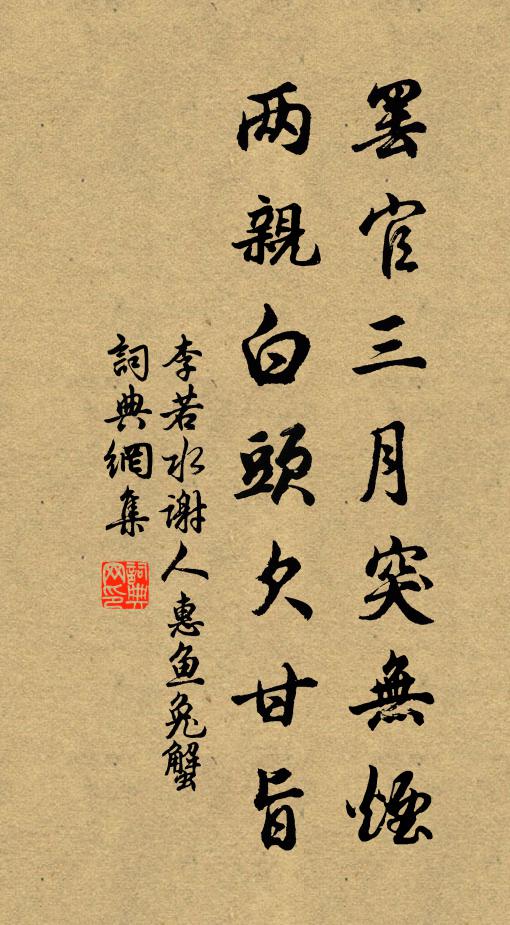 罢官三月突無煙
两親白頭欠甘旨
李若水谢人惠鱼兔蟹
詞典網集
詞典网印